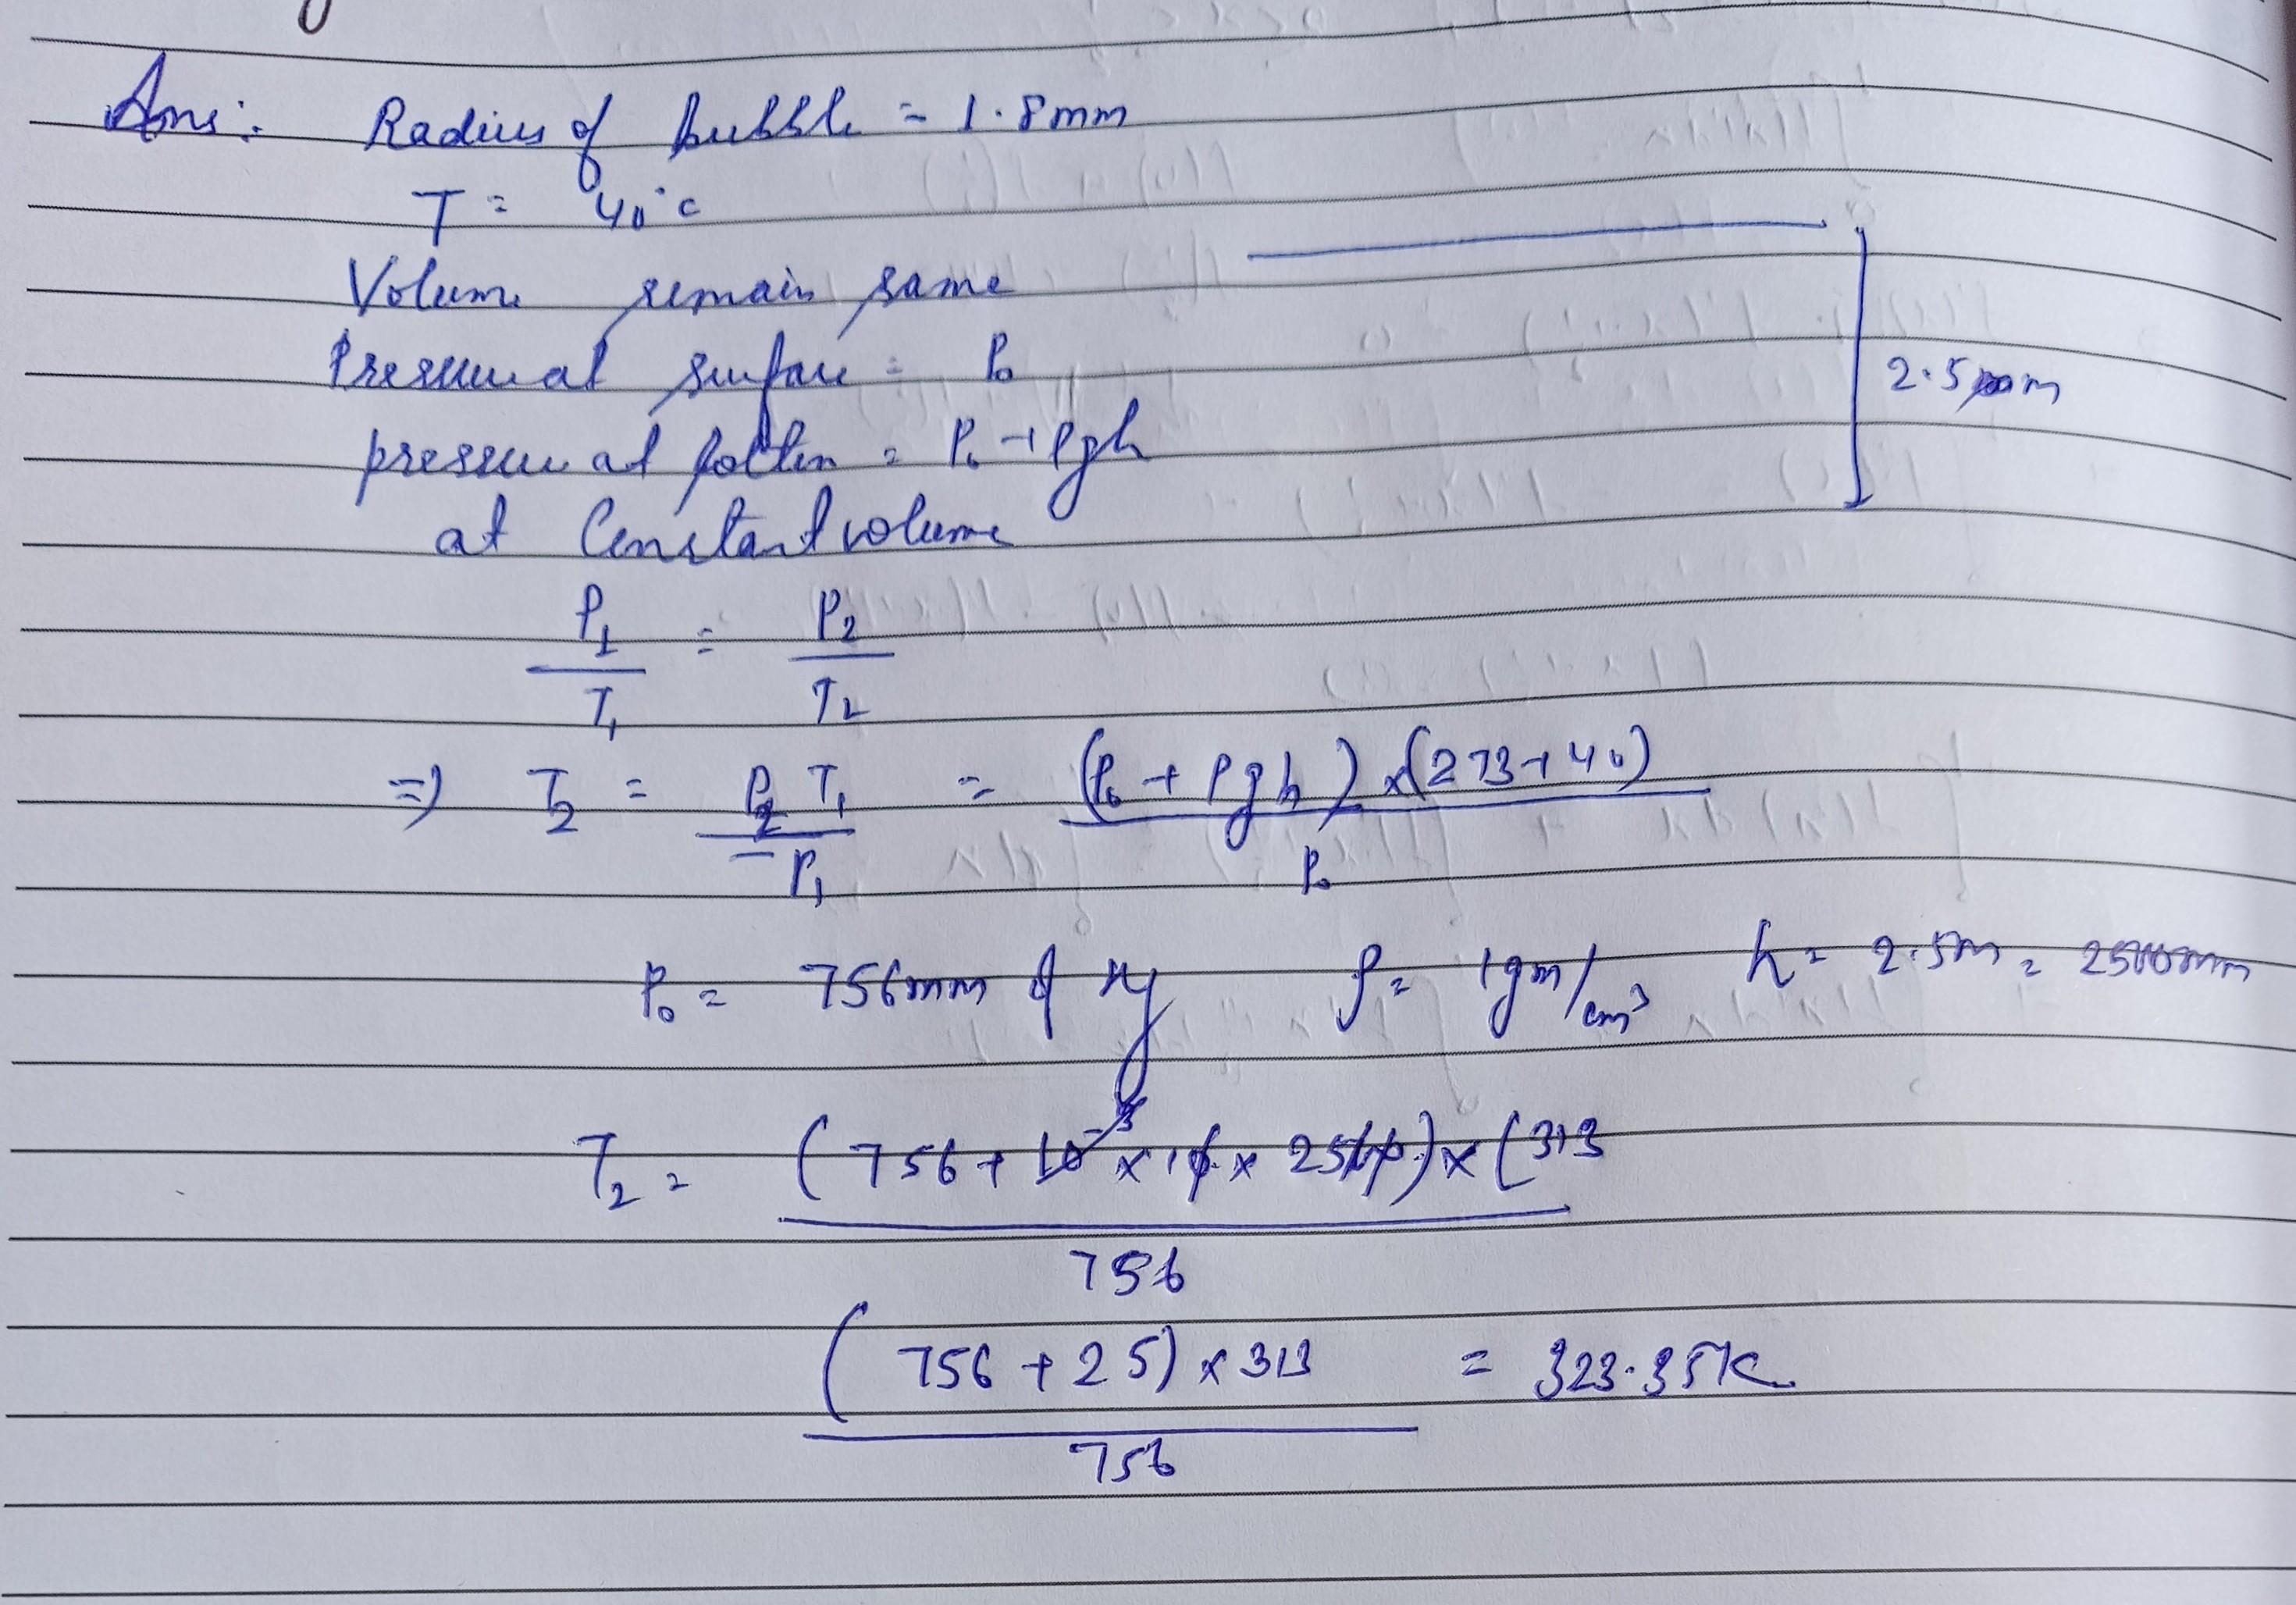 Ans: Radius of bubble = 1.8mm
T = 40°C
Volume remain same
Pressure at surface = P₀
2.5 m
pressure at bottom = P₀ + ρgh
at Constant volume
P₁/T₁ = P₂/T₂
=) T₂ = P₂T₁/P₁ = (P₀ + ρgh) × (273+40)/P₀
P₀ = 756mm of Hg ρ = 1gm/cm³ h = 2.5m = 2500mm
T₂ = (756 + 10⁻³ × 10 × 2500) × (313/756
(756 + 25) × 313/756 = 323.35K